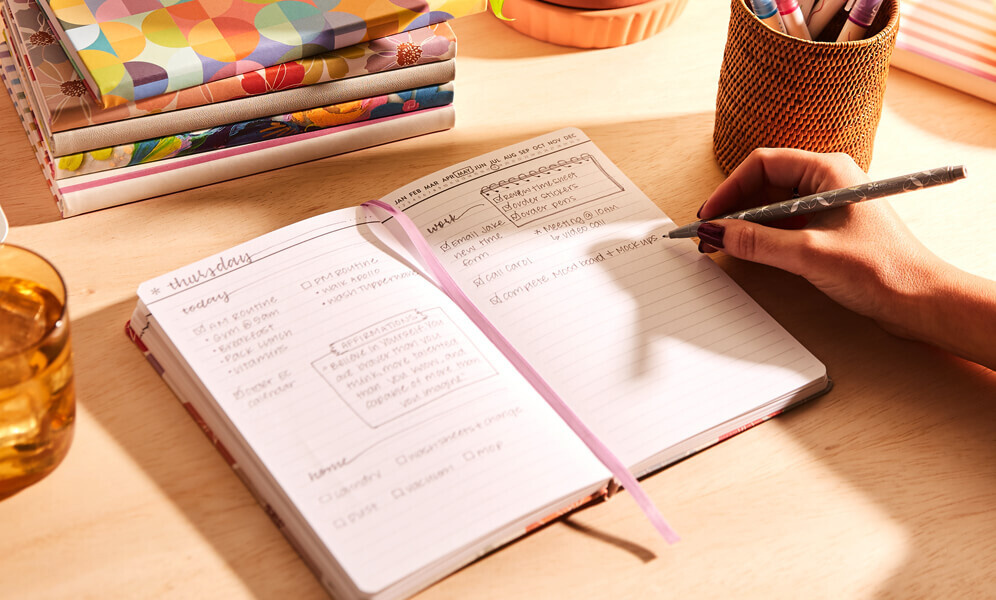 * thursday
today
AM ROUTINE
• Gym @ 9am
• Breakfast
• Pack Lunch
• Vitamins
Order EC
calendar
PM ROUTINE
• Walk Apollo
• Wash Tupperware
AFFIRMATIONS
"Believe in yourself. You
are braver than you
think, more talented
than you know, and
capable of more than
you imagine."
home
Laundry
Dust
wash sheets + change
vacuum
mop
JAN FEB MAR APR MAY JUN JUL AUG SEP OCT NOV DEC
work
Review time sheet
order stickers
order pens
Email Jake
new time
form
* Meeting @ 10am
↳ video call
Call Carol
complete Mood board + Mock-ups